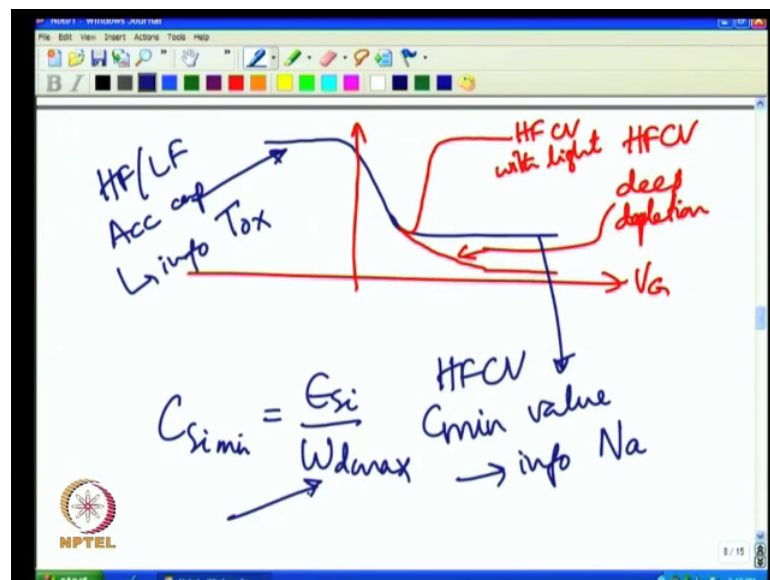 Note1 - Windows Journal
File Edit View Insert Actions Tools Help
B I
HF/LF
Acc cap
↳ info Tox
HFCV
with light
HFCV
deep
depletion
VG
Csi min = Esi / Wdmax
HFCV
Cmin value
→ info Na
NPTEL
8 / 15
start